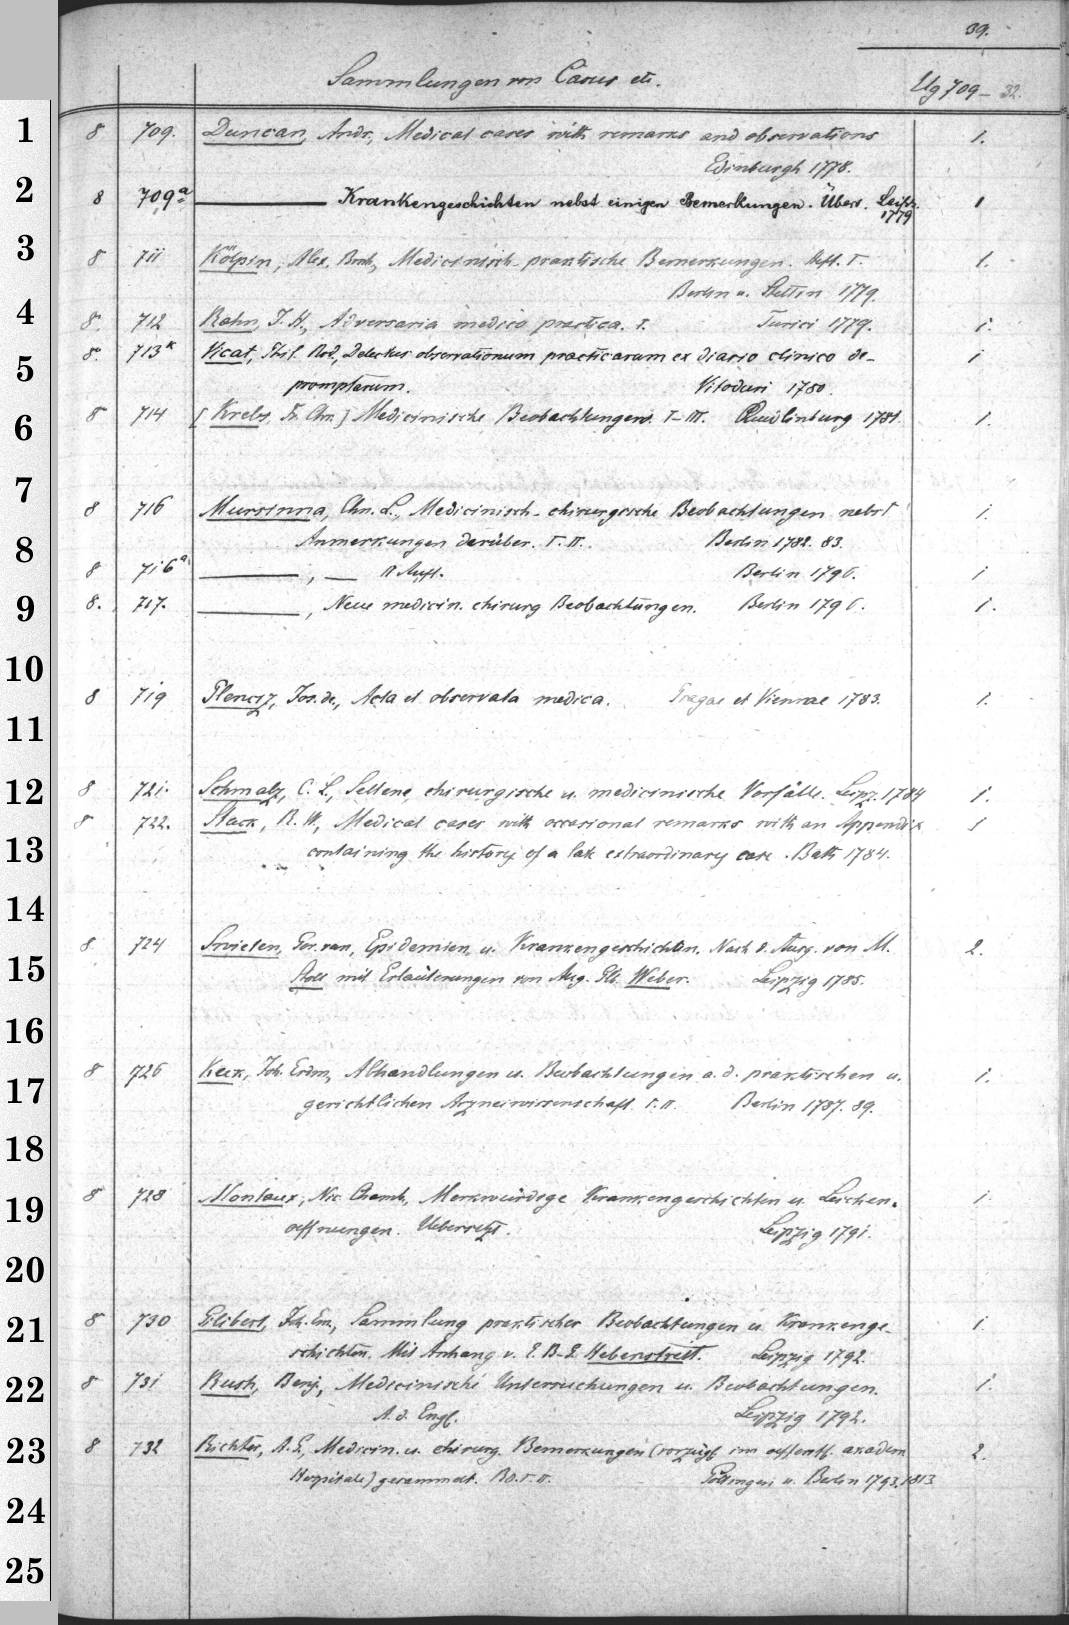 39.
Sammlungen von Casus etc. Ug 709-32.
1
8 709. Duncan, Andr., Medical cases with remarks and observations 1.
Edinburgh 1778.
2
8 709a ——— Krankengeschichten nebst einigen Bemerkungen. Übers. Leipz. 1779 1
3
8 711 Kölpin, Alex. Bernh., Medicinisch-praktische Bemerkungen. Heft. I. 1.
Berlin u. Stettin 1779.
4
8. 712 Rahn, J. H., Adversaria medico practica. I. Turici 1779. 1.
8. 713* Vicat, Phil. Rod., Delectus observationum practicarum ex diario clinico de- 1
5
promptarum. Vitoduri 1780.
6
8 714 [Krebs, Fr. Chr.] Medicinische Beobachtungen. I-III. Quedlinburg 1781. 1.
7
8 716 Mursinna, Chn. L., Medicinisch-chirurgische Beobachtungen nebst 1.
8
Anmerkungen darüber. I. II. Berlin 1782. 83.
8 716a ———, — II Aufl. Berlin 1796. 1
9
8. 717. ———, Neue medicin. chirurg Beobachtungen. Berlin 1796. 1.
10
8 719 Plencz, Jos. de, Acta et observata medica. Pragae et Viennae 1783. 1.
11
12
8 721. Schmalz, C. L., Seltene chirurgische u. medicinische Vorfälle. Leipz. 1784 1.
8 722. Stack, R. W., Medical cases with occasional remarks with an Appendix 1
13
containing the history of a late extraordinary case. Bath 1784.
14
8 724 Swieten, Ger. van, Epidemien u. Krankengeschichten. Nach d. Ausg. von M. 2.
15
Stoll mit Erläuterungen von Aug. Glb. Weber. Leipzig 1785.
16
8 726 Keck, Joh. Erdm., Abhandlungen u. Beobachtungen a. d. praktischen u. 1.
17
gerichtlichen Arzneiwissenschaft. I. II. Berlin 1787. 89.
18
8 728 Montaux, Nic. Chamb., Merkwürdige Krankengeschichten u. Leichen- 1
19
oeffnungen. Uebersetzt. Leipzig 1791.
20
8 730 Gilibert, Joh. Em., Sammlung praktischer Beobachtungen u. Krankenge- 1.
21
schichten. Mit Anhang v. E. B. G. Hebenstreit. Leipzig 1792.
22
8 731 Rush, Benj., Medicinische Untersuchungen u. Beobachtungen. 1.
A. d. Engl. Leipzig 1792.
23
8 732 Richter, A. G., Medicin. u. chirurg. Bemerkungen (vorzügl. im oeffentl. akadem. 2.
Hospitale) gesammelt. Bd. I. II. Göttingen u. Berlin 1793. 1813
24
25